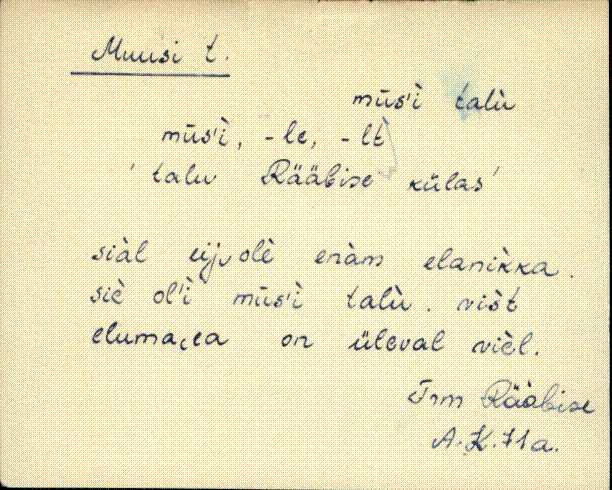 Muusi t.
mūs'ì talù
mūs'ì, -le, -lt
' talu Rääbise külas'
siàl eijvolè enàm elanìkka.
siè ol'ì mūs'ì talù. vist
elumaja on üleval vièl.
Trm Rääbise
A.K.71a.